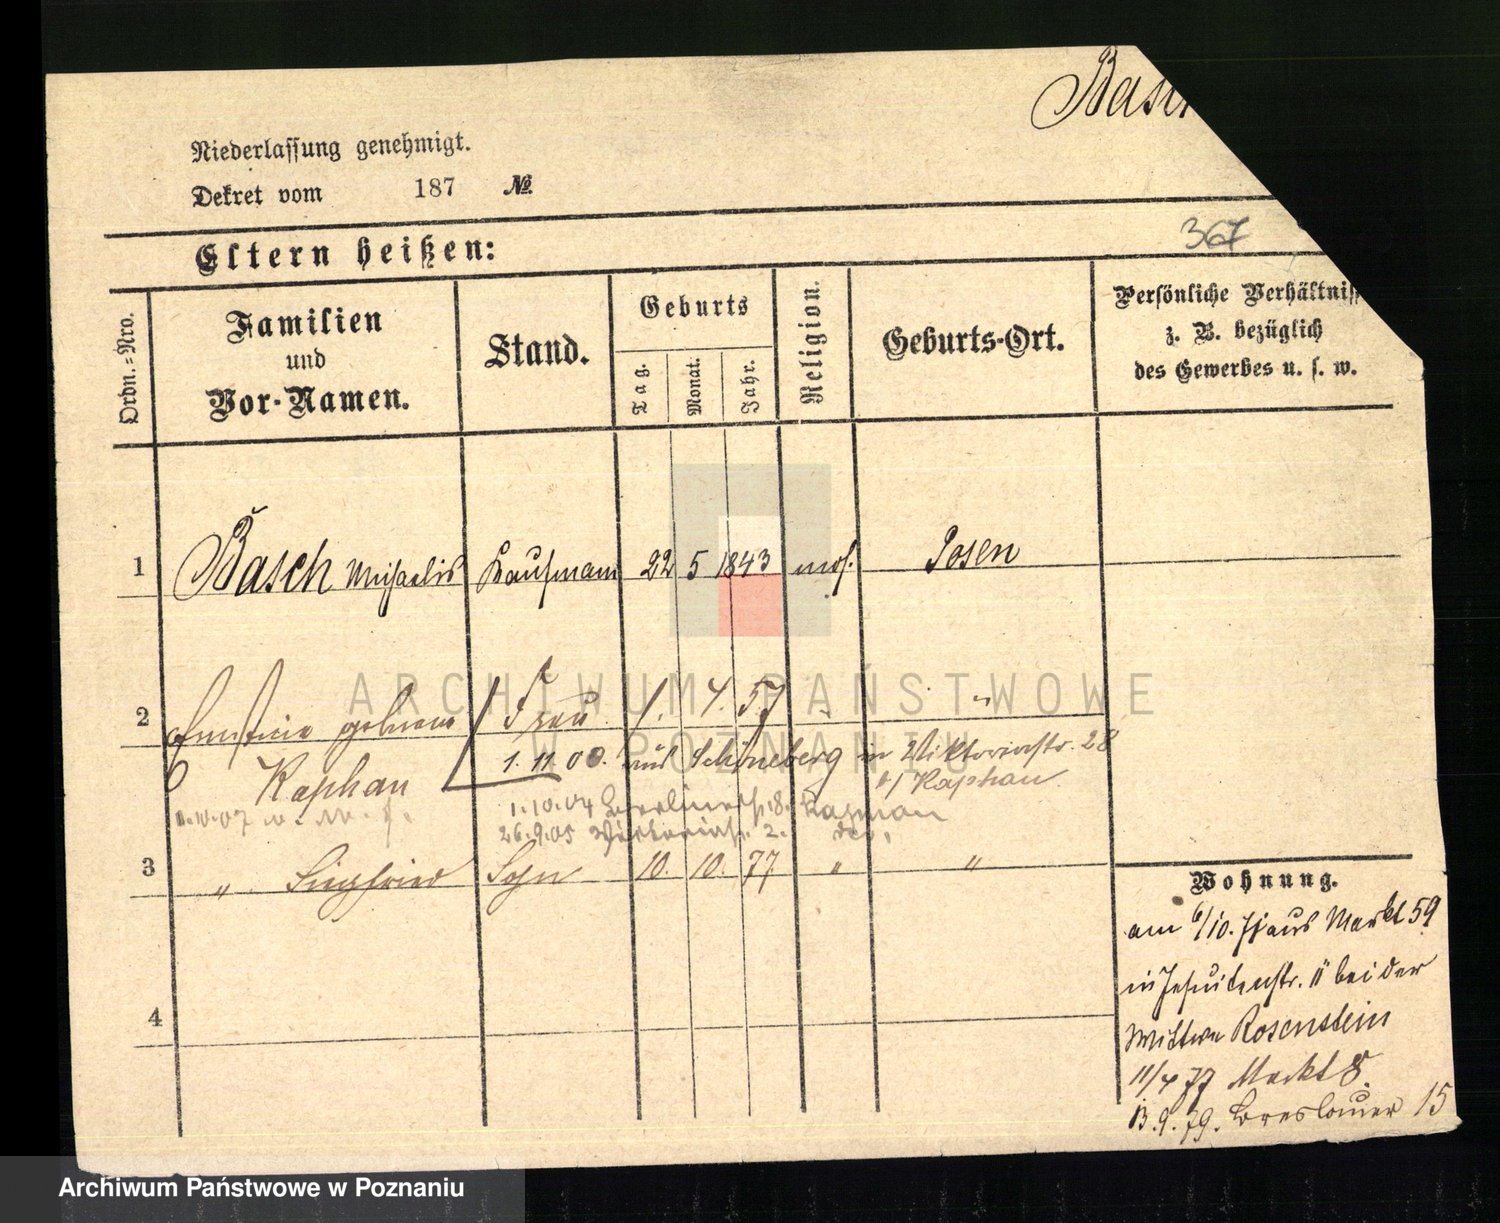 Basch
Niederlassung genehmigt.
Dekret vom 187 №
Eltern heißen:
367
Ordn.-Nro.
Familien
und
Vor-Namen.
Stand.
Geburts
Tag.
Monat.
Jahr.
Religion.
Geburts-Ort.
Persönliche Verhältniss
z. B. bezüglich
des Gewerbes u. s. w.
1 Basch Michaelis Kaufmann 22 5 1843 mos. Posen
2 Ernstine geborne Frau 1. 4. 57 " "
Kaphan
1. 11. 00. aus Schöneberg in Viktoriastr. 28
b/ Kaphan
1.10.04 Berlinerstr. 8. Kaphan
26.9.05 Viktoriastr. 2. do.
3 " Siegfried Sohn 10. 10. 77 " "
4
Wohnung.
am 6/10. 71 aus Markt 59
in Jesuitenstr. 11 bei der
Wittwe Rosenstein
11/4 77 Markt 8.
13.9.79. Breslauer 15
ARCHIWUM PAŃSTWOWE
W POZNANIU
Archiwum Państwowe w Poznaniu